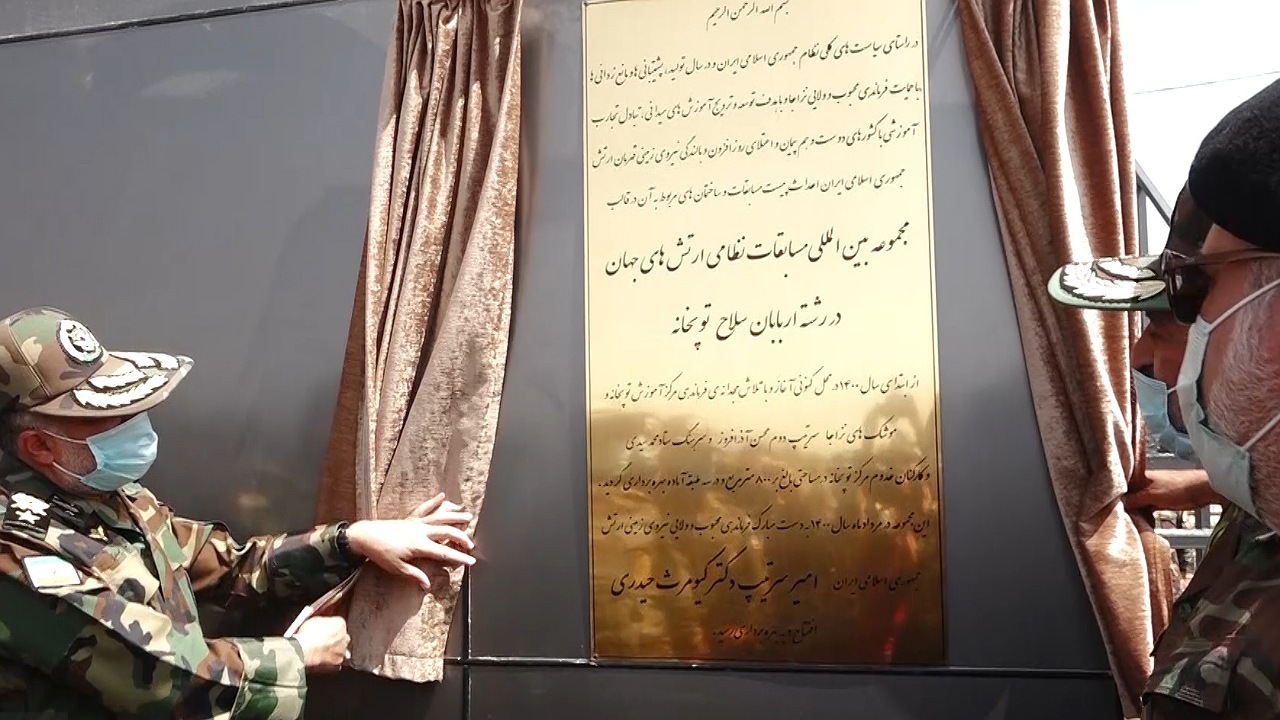 بسم الله الرحمن الرحیم
در راستای سیاست های کلی نظام جمهوری اسلامی ایران و در سال تولید، پشتیبانی ها و مانع زدائی ها
با حمایت فرماندهی محبوب و ولایی نزاجا و با هدف توسعه و ترویج آموزش های میدانی، تبادل تجارب
آموزشی با کشورهای دوست و هم پیمان و اعتلای روز افزون و بالندگی نیروی زمینی قهرمان ارتش
جمهوری اسلامی ایران احداث پیست مسابقات و ساختمان های مربوط به آن در قالب
مجموعه بین المللی مسابقات نظامی ارتش های جهان
در رشته اربابان سلاح توپخانه
از ابتدای سال ۱۴۰۰ در محل کنونی آغاز و با تلاش مجدانه ی فرماندهی مرکز آموزش توپخانه و
موشک های نزاجا سرتیپ دوم محسن آذرافروز و سرهنگ ستاد محمد سیدی
و کارکنان خدوم مرکز توپخانه در مساحتی بالغ بر ۸۰۰ مترمربع و در سه طبقه آماده بهره برداری گردید.
این مجموعه در مرداد ماه سال ۱۴۰۰ به دست مبارک فرماندهی محبوب و ولایی نیروی زمینی ارتش
جمهوری اسلامی ایران امیر سرتیپ دکتر کیومرث حیدری
افتتاح و به بهره برداری رسید.